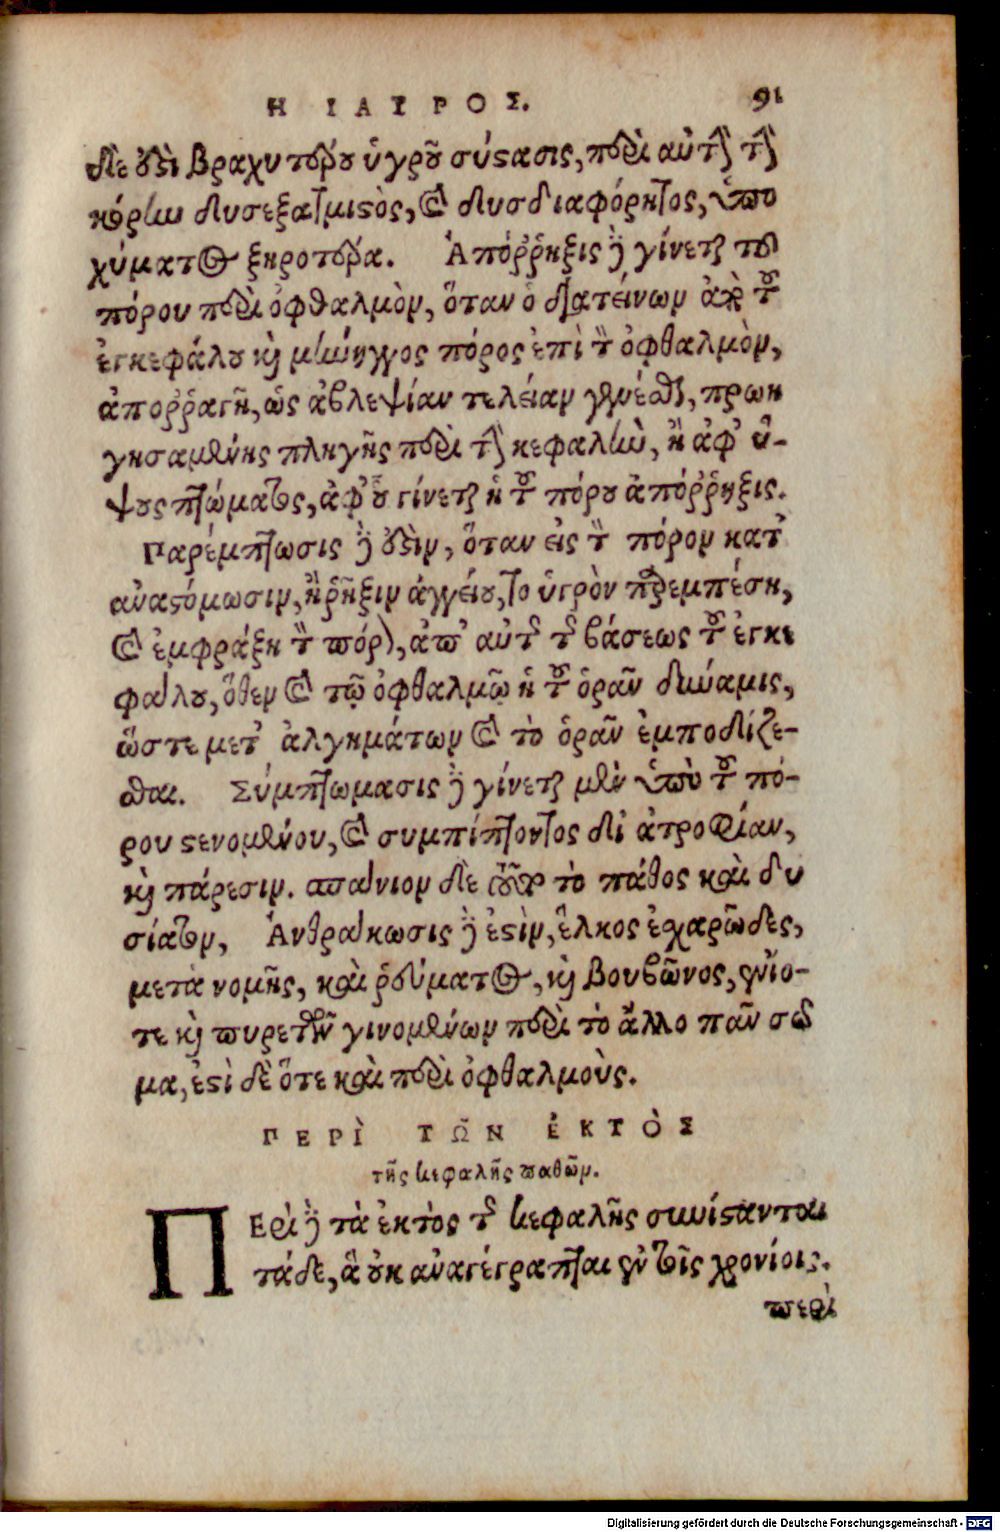 Η ΙΑΤΡΟΣ. 91
δέ ἐστι βραχυτέρου ὑγροῦ σύστασις, περὶ αὐτὴν τὴν
κόρην δυσεξατμιστὸς, καὶ δυσδιαφόρητος, ὑπο
χύματος ξηροτέρα. Ἀπόῤῥηξις δὲ γίνεται τοῦ
πόρου περὶ ὀφθαλμὸν, ὅταν ὁ διατείνων ἀπὸ τοῦ
ἐγκεφάλου καὶ μήνιγγος πόρος ἐπὶ τὸν ὀφθαλμὸν,
ἀποῤῥαγῇ, ὡς ἀβλεψίαν τελείαν γενέσθαι, προη
γησαμένης πληγῆς περὶ τὴν κεφαλὴν, ἢ ἀφ' ὕ-
ψους πτώματος, ἀφ' οὗ γίνεται ἡ τοῦ πόρου ἀπόῤῥηξις.
Παρέμπτωσις δὲ ἐστὶν, ὅταν εἰς τὸν πόρον κατ'
ἀναστόμωσιν, ἢ ῥῆξιν ἀγγείου, τὸ ὑγρὸν παρεμπέσῃ,
καὶ ἐμφράξῃ τὸν πόρον, ἀπ' αὐτῆς τῆς βάσεως τοῦ ἐγκε
φάλου, ὅθεν καὶ τῷ ὀφθαλμῷ ἡ τοῦ ὁρᾶν δύναμις,
ὥστε μετ' ἀλγημάτων καὶ τὸ ὁρᾶν ἐμποδίζε-
σθαι. Σύμπτωμασις δὲ γίνεται μὲν ὑπὸ τοῦ πό-
ρου στενουμένου, καὶ συμπίπτοντος δι' ἀτροφίαν,
καὶ πάρεσιν. σπάνιον δὲ εὑρεῖν τὸ πάθος καὶ δυ
σίατον, Ἀνθράκωσις δὲ ἐστὶν, ἕλκος ἐσχαρῶδες,
μετὰ νομῆς, καὶ ῥεύματος, καὶ βουβῶνος, ἐνίο-
τε καὶ πυρετῶν γινομένων περὶ τὸ ἄλλο πᾶν σῶ
μα, ἐστὶ δὲ ὅτε καὶ περὶ ὀφθαλμοὺς.
ΠΕΡῚ ΤΩ͂Ν ἘΚΤῸΣ
τῆς κεφαλῆς παθῶν.
ΠΕρὶ δὲ τὰ ἐκτὸς τῆς κεφαλῆς συνίστανται
τάδε, ἃ οὐκ ἀναγέγραπται ἐν τοῖς χρονίοις.
περὶ
Digitalisierung gefördert durch die Deutsche Forschungsgemeinschaft - DFG